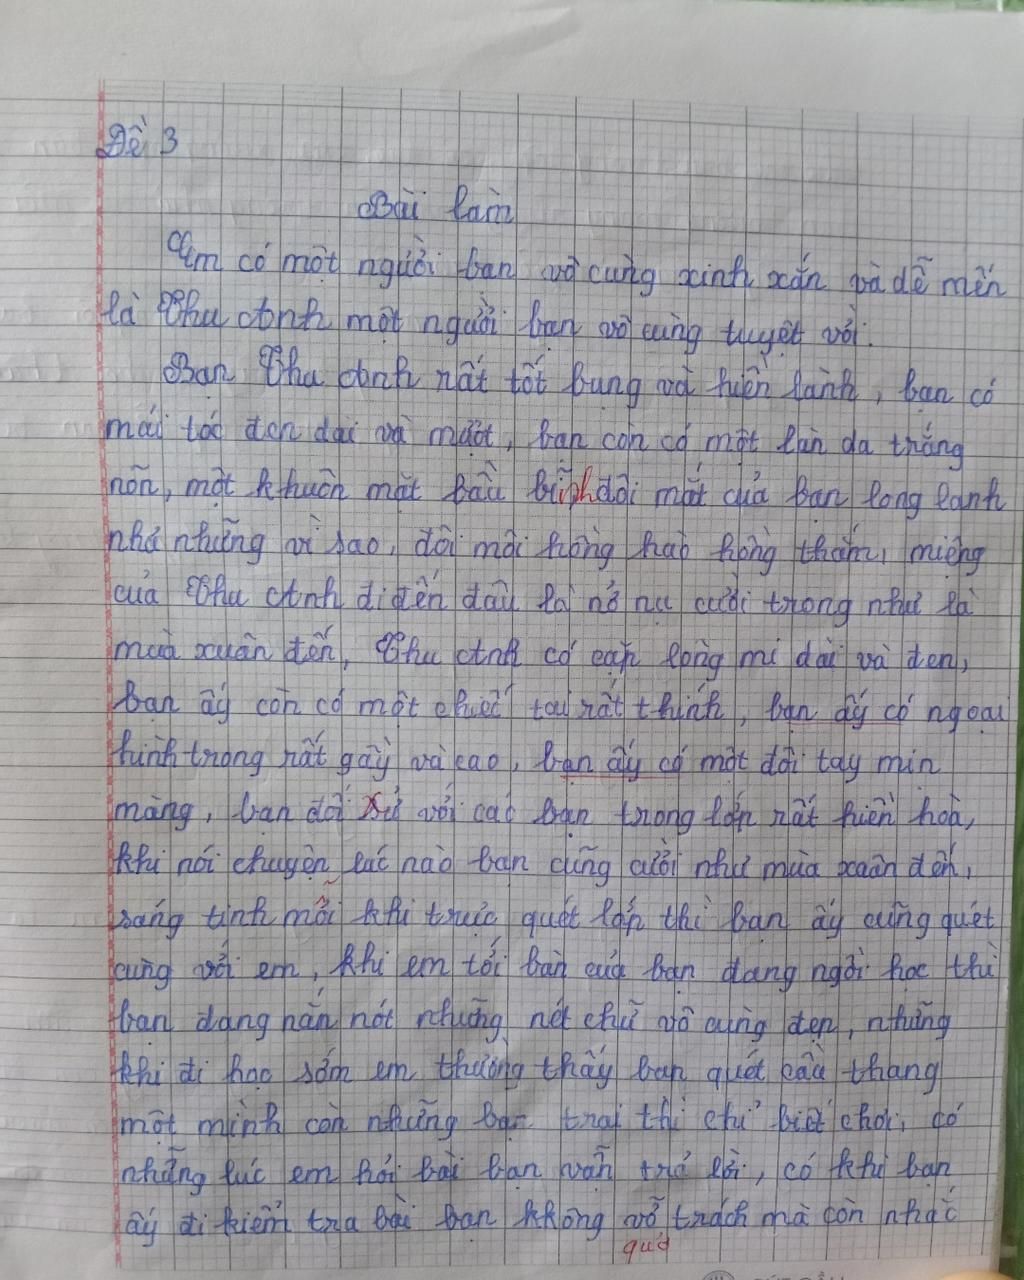 Đề 3
Bài làm
Em có một người bạn vô cùng xinh xắn và dễ mến
là Thu Anh một người bạn vô cùng tuyệt vời.
Bạn Thu Anh rất tốt bụng và hiền lành, bạn có
mái tóc đen dài và mượt, bạn còn có một làn da trắng
nõn, một khuôn mặt bầu bĩnh đôi mắt của bạn long lanh
như những vì sao, đôi môi hồng hào hồng thắm, miệng
của Thu Anh đi đến đâu là nở nụ cười trông như là
mùa xuân đến, Thu Anh có cặp lông mi dài và đen,
bạn ấy còn có một chiếc tai rất thính, bạn ấy có ngoại
hình trông rất gầy và cao, bạn ấy có một đôi tay mịn
màng, bạn đối xử với các bạn trong lớp rất hiền hoà,
khi nói chuyện lúc nào bạn cũng cười như mùa xuân đến,
sáng tinh mỗi khi trực quét lớp thì bạn ấy cũng quét
cùng với em, khi em tới bàn của bạn đang ngồi học thì
bạn đang nắn nót những nét chữ vô cùng đẹp, những
khi đi học sớm em thường thấy bạn quét cầu thang
một mình còn những bạn trai thì chỉ biết chơi, có
những lúc em hỏi bài bạn vẫn trả lời, có khi bạn
ấy đi kiểm tra bài bạn không trách mà còn nhắc
quở